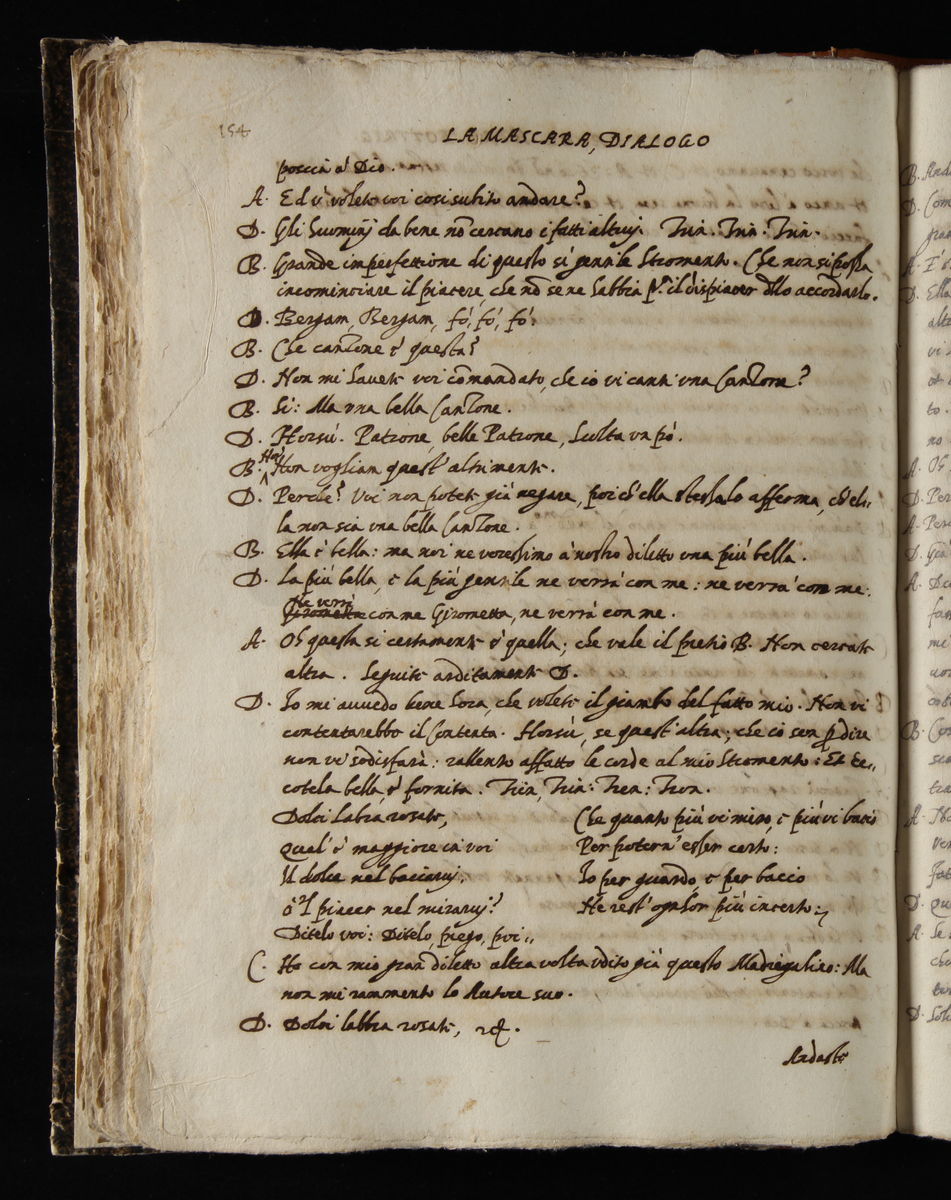 154
LA MASCARA, DIALOGO
poscia à Dio.
A. Ed v' volete voi così subito andare?
D. Gli huominj da bene nõ cercano i fatti altruj. Trin. Trin. Trin.
B. Grande imperfettione di questo sì gentile Stromento. Che non si possa
incominciare il piacere, che nõ se ne habbia pr.ª il dispiacer dllo accordarlo.
D. Bergam, Bergam, fó, fó, fó.
B. Che canzone è questa?
D. Non mi havete voi comandato, che io vi canti vna Canzone?
B. Sì: Ma vna bella Canzone.
D. Horsù. Patrone, belle Patrone, scolta vn pó.
B. Noi Non vogliam quest' altrimente.
D. Perche? Voi non potete già negare, poi ch'ella stessa lo afferma, ch'el=
la non sia vna bella Canzone.
B. Ella è bella: ma noi ne voressimo à nostro diletto vna più bella.
D. La più bella, e la più gentile ne verrà con me: ne verrà con me:
Ne verrà
Girometta con me Girometta, ne verrà con me.
A. Oh questa si certamente è quella; che vale il pretio B. Non cercate
altra. Seguite arditamente D.
D. Io mi avvedo bene hora, che volete il giambo del fatto mio. Non vi
contentarebbe il Contenta. Horsù, se quest' altra; che io son p dire
non vi sodisfarà: rallento affatto le corde al mio Stromento: Et ec=
cotela bella, e' fornita. Trin, Trin: Tren: Tron.
Dolci labra rosate,
Qual' è maggiore in voi
Il dolce nel baciarvj,
ò 'l piacer nel mirarvj?
Ditelo voi: Ditelo, priego, poi=
Che quanto più vi miro, e più vi bacio
Per potern' esser certo:
Io per guardo, e per baccio
Ne rest' ogn'hor più incerto:
C. Ho con mio gran diletto altra volta vdito già questo Madriegalino: Ma
non mi rammento lo Autore suo.
D. Dolci labbra rosate, &c.
Andaste
B.
D. Com
A.
D. Ella
altr
vi
to.
no
A. Oh
D. Per
A. Perc
D. Già
A.
B. Con
A.
D. Qu
A. Se
D. Sole